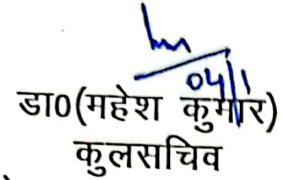 04/1
डा0(महेश कुमार)
कुलसचिव